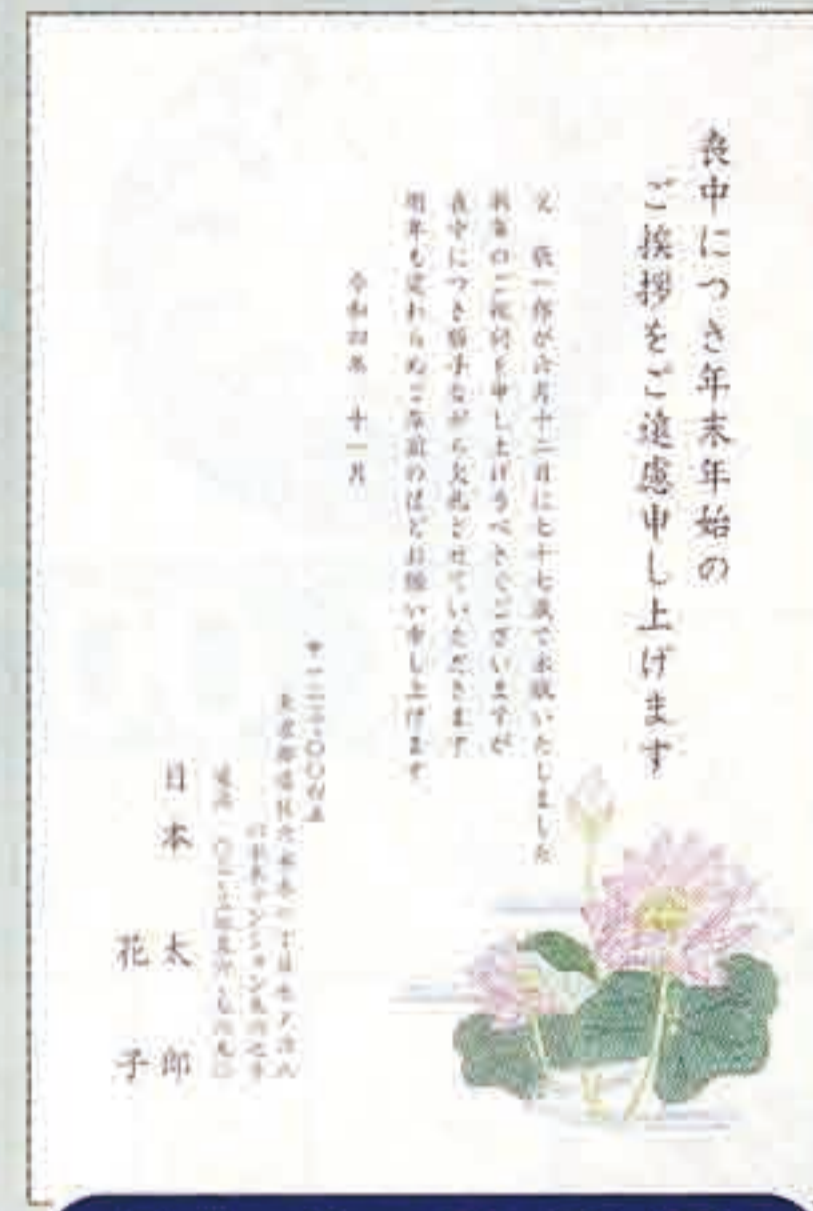 喪中につき年末年始の
ご挨拶をご遠慮申し上げます
父 敬一郎が六月十二日に七十七歳で永眠いたしました
新年のご祝詞を申し上げるべきところございますが
喪中につき勝手ながら欠礼させていただきます
明年も変わらぬご厚誼のほどお願い申し上げます
令和四年 十一月
日本 太郎
花子